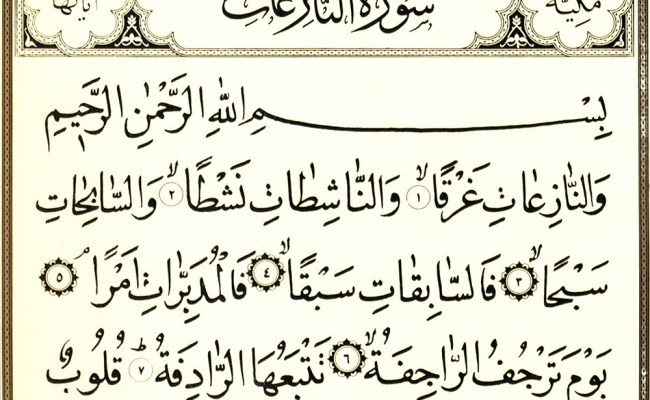 مكية سورة النازعات آياتها
بِسْمِ اللهِ الرَّحْمٰنِ الرَّحِيمِ
وَالنَّازِعَاتِ غَرْقًاۙ ١ وَالنَّاشِطَاتِ نَشْطًاۙ ٢ وَالسَّابِحَاتِ
سَبْحًاۙ ٣ فَالسَّابِقَاتِ سَبْقًاۙ ٤ فَالْمُدَبِّرَاتِ اَمْرًاۢ ٥
يَوْمَ تَرْجُفُ الرَّاجِفَةُۙ ٦ تَتْبَعُهَا الرَّادِفَةُۜ ٧ قُلُوبٌ